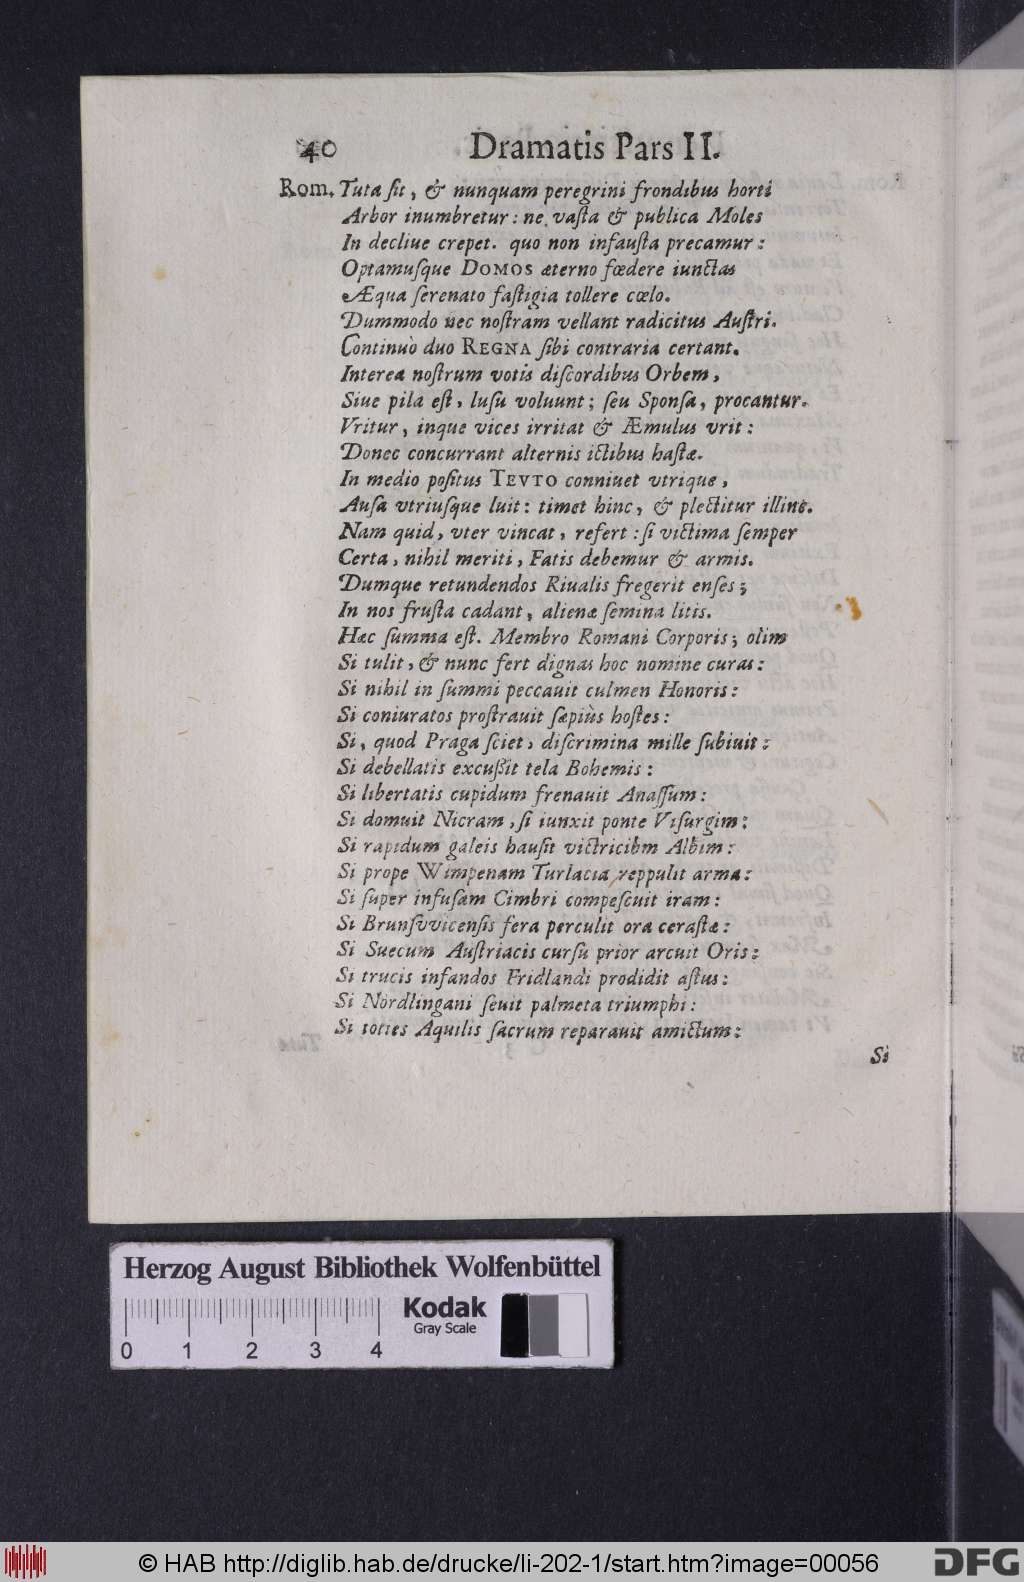 40 Dramatis Pars II.
Rom. Tuta ſit, & nunquam peregrini frondibus horti
Arbor inumbretur: ne vaſta & publica Moles
In decliue crepet. quo non infauſta precamur:
Optamuſque DOMOS æterno fœdere iunctas
Æqua ſerenato faſtigia tollere cœlo.
Dummodo nec noſtram vellant radicitus Auſtri.
Continuò duo REGNA ſibi contraria certant.
Interea noſtrum votis diſcordibus Orbem,
Siue pila eſt, luſu voluunt; ſeu Sponſa, procantur.
Vritur, inque vices irritat & Æmulus vrit:
Donec concurrant alternis ictibus haſtæ.
In medio poſitus TEVTO conniuet vtrique,
Auſa vtriuſque luit: timet hinc, & plectitur illinc.
Nam quid, vter vincat, refert: ſi victima ſemper
Certa, nihil meriti, Fatis debemur & armis.
Dumque retundendos Riualis fregerit enſes;
In nos fruſta cadant, alienæ ſemina litis.
Hæc ſumma eſt. Membro Romani Corporis; olim
Si tulit, & nunc fert dignas hoc nomine curas:
Si nihil in ſummi peccauit culmen Honoris:
Si coniuratos proſtrauit ſæpiùs hoſtes:
Si, quod Praga ſciet, diſcrimina mille ſubiuit:
Si debellatis excuſſit tela Bohemis:
Si libertatis cupidum frenauit Anaſſum:
Si domuit Nicram, ſi iunxit ponte Viſurgim:
Si rapidum galeis hauſit victricibm Albim:
Si prope Wimpenam Turlacia reppulit arma:
Si ſuper infuſam Cimbri compeſcuit iram:
Si Brunſvvicenſis fera perculit ora ceraſtæ:
Si Suecum Auſtriacis curſu prior arcuit Oris:
Si trucis infandos Fridlandi prodidit aſtus:
Si Nördlingani ſeuit palmeta triumphi:
Si toties Aquilis ſacrum reparauit amictum:
Si
Herzog August Bibliothek Wolfenbüttel
Kodak
Gray Scale
0 1 2 3 4
© HAB http://diglib.hab.de/drucke/li-202-1/start.htm?image=00056
DFG